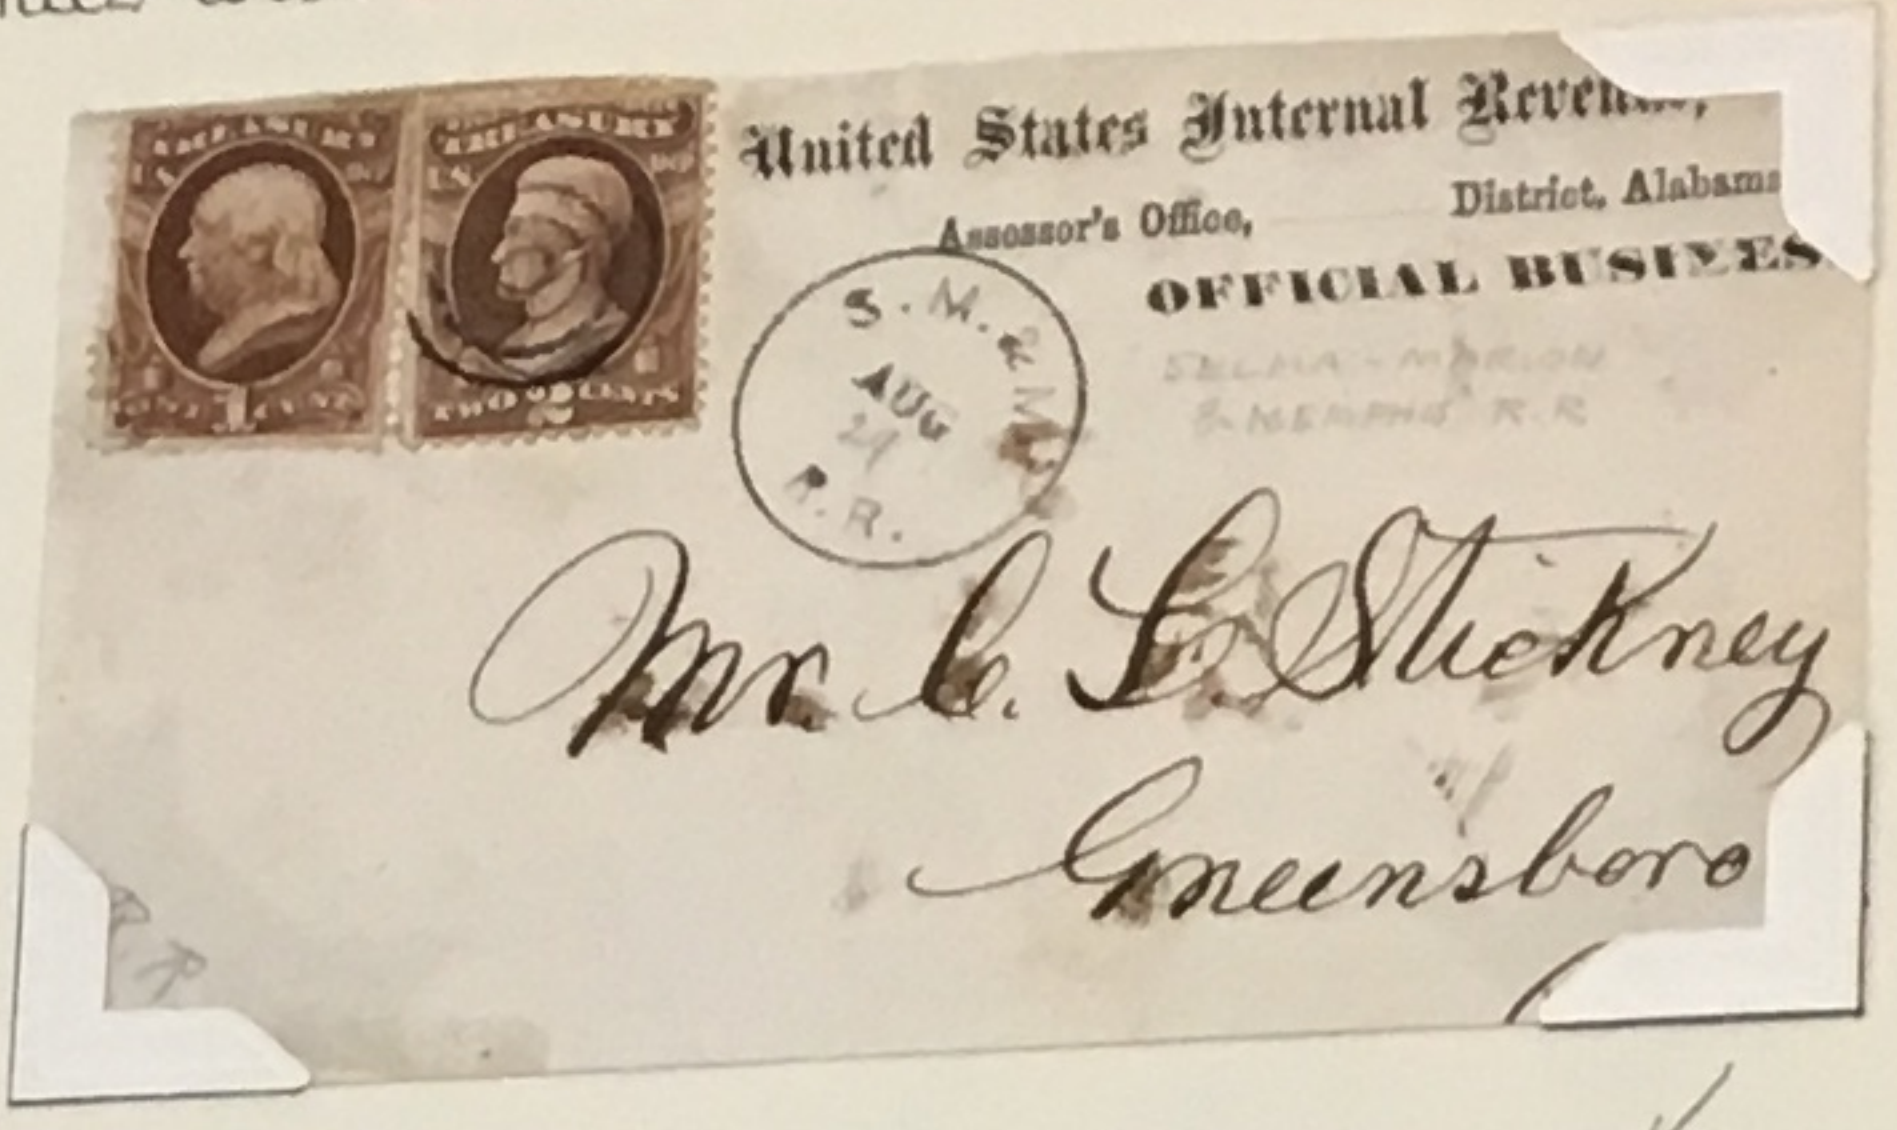 TREASURY
U.S.
ONE 1 CENT
TREASURY
U.S.
TWO 2 CENTS
United States Internal Reven
Assessor's Office, District, Alabama
OFFICIAL BUSINES
S. M. & M.
AUG
R. R.
SELMA - MARION
& MEMPHIS R.R
Mr. C. L. Stickney
Greensboro